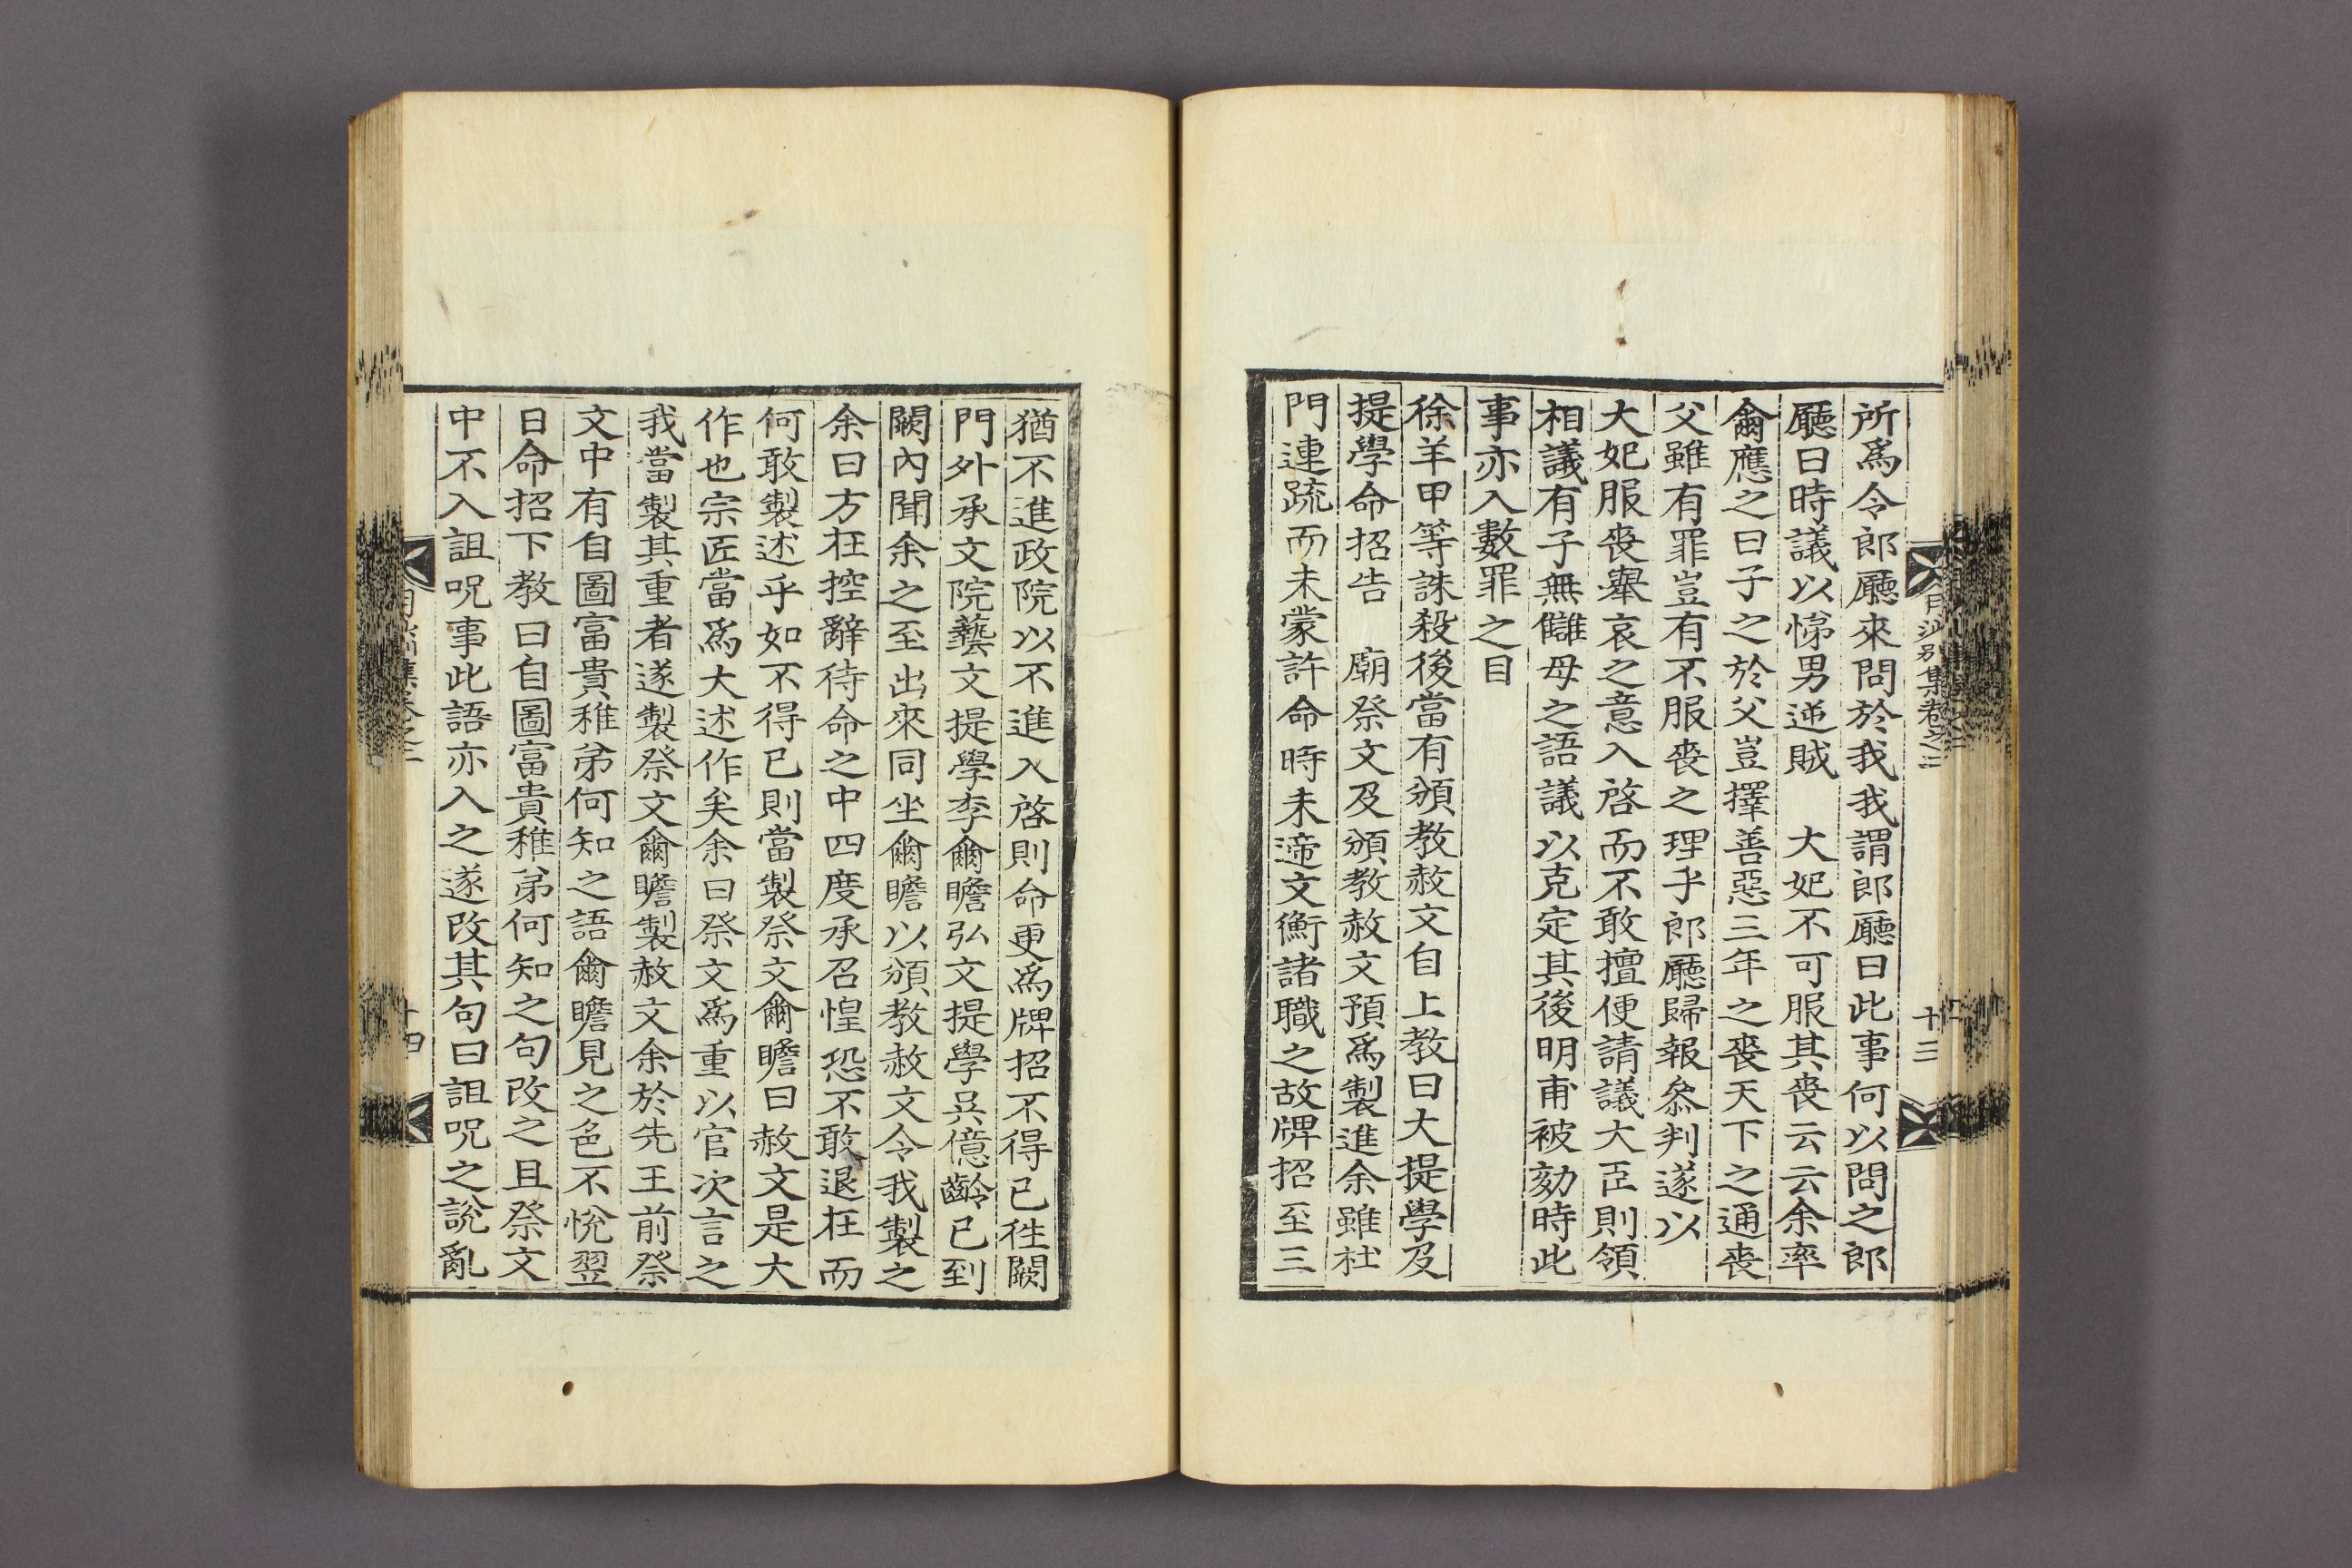 月沙別集卷之二
十三
所爲令郎廳來問於我我謂郎廳曰此事何以問之郎
廳曰時議以悌男逆賊　大妃不可服其喪云云余率
爾應之曰子之於父豈擇善惡三年之喪天下之通喪
父雖有罪豈有不服喪之理乎郎廳歸報叅判遂以
大妃服喪擧哀之意入啓而不敢擅便請議大臣則領
相議有子無讎母之語議以克定其後明甫被劾時此
事亦入數罪之目
徐羊甲等誅殺後當有頒教赦文自上教曰大提學及
提學命招告　廟祭文及頒教赦文預爲製進余雖杜
門連疏而未蒙許命時未遞文衡諸職之故牌招至三
猶不進政院以不進入啓則命更爲牌招不得已徃闕
門外承文院藝文提學李爾瞻弘文提學吳億齡已到
闕內聞余之至出來同坐爾瞻以頒教赦文令我製之
余曰方在控辭待命之中四度承召惶恐不敢退在而
何敢製述乎如不得已則當製祭文爾瞻曰赦文是大
作也宗匠當爲大述作矣余曰祭文爲重以官次言之
我當製其重者遂製祭文爾瞻製赦文余於先王前祭
文中有自圖富貴稚弟何知之語爾瞻見之色不悅翌
日命招下教曰自圖富貴稚弟何知之句改之且祭文
中不入詛呪事此語亦入之遂改其句曰詛呪之說亂
集卷之二
十四